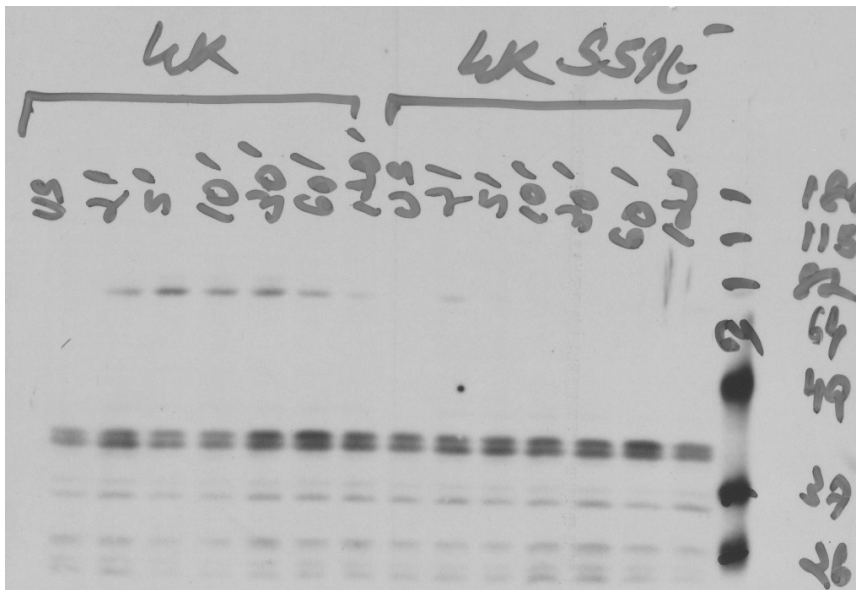 WK WK SS9E-
US 2' 5' 10' 30' 60' 120' US 2' 5' 10' 30' 60' 120'
180
115
82
64 64
49
37
26